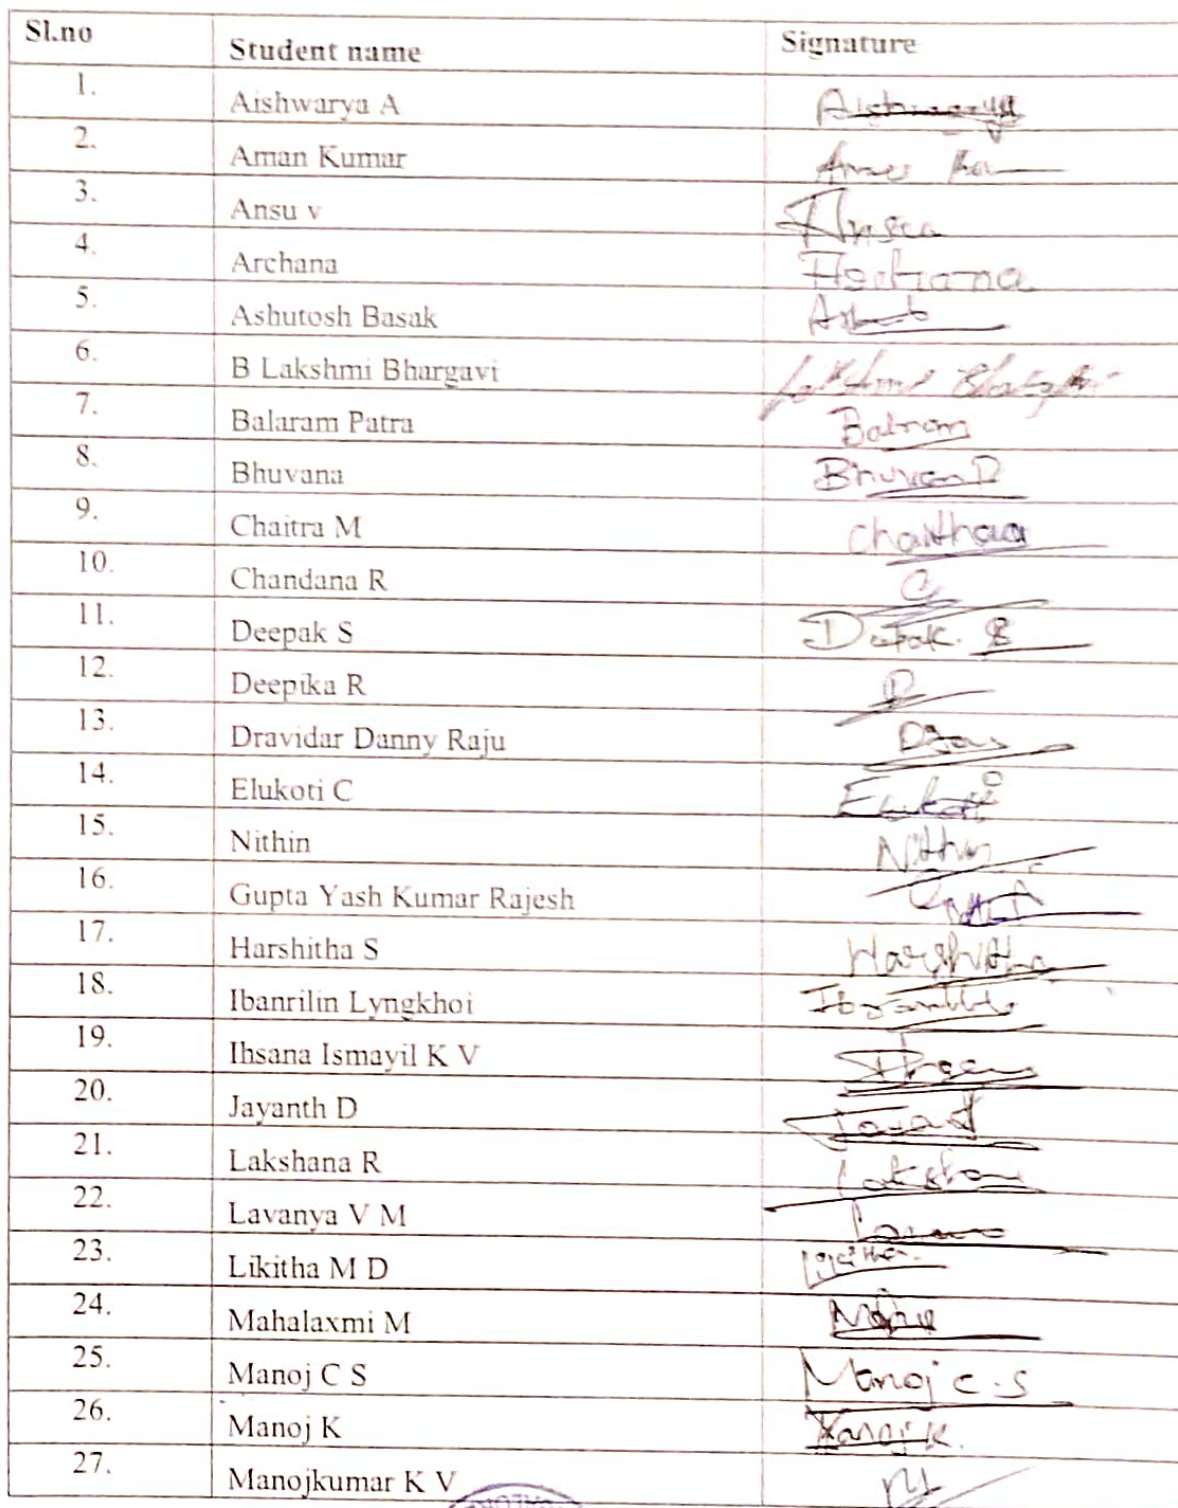 Sl.no Student name Signature
1. Aishwarya A Aishwarya
2. Aman Kumar
3. Ansu v Ansu
4. Archana Archana
5. Ashutosh Basak
6. B Lakshmi Bhargavi Lakshmi Bhargavi
7. Balaram Patra Balram
8. Bhuvana
9. Chaitra M
10. Chandana R C
11. Deepak S Deepak. S
12. Deepika R D
13. Dravidar Danny Raju
14. Elukoti C Elukoti
15. Nithin Nithin
16. Gupta Yash Kumar Rajesh
17. Harshitha S Harshitha
18. Ibanrilin Lyngkhoi
19. Ihsana Ismayil K V
20. Jayanth D
21. Lakshana R
22. Lavanya V M
23. Likitha M D
24. Mahalaxmi M
25. Manoj C S Manoj C.S
26. Manoj K Manoj K.
27. Manojkumar K V